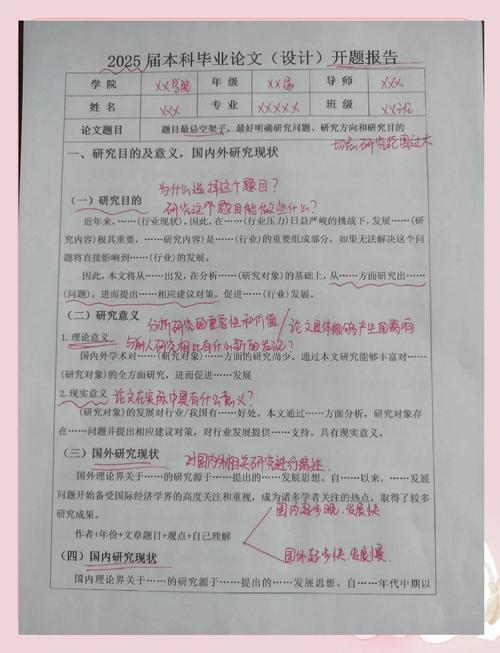 2025 届本科毕业论文（设计）开题报告
学院 xx学院 年级 xx届 导师 xxx
姓名 xxx 专业 xxxxx 班级 xx班
论文题目 题目最忌空架子，最好明确研究问题、研究方向和研究目的
切忌研究范围过大
一、研究目的及意义，国内外研究现状
为什么选择这个题目？
（一）研究目的 研究这个题目能做些什么？
近年来，……(行业现状)，因此，在……(行业压力)日益严峻的挑战下，发展……(研
究内容)极其重要，……研究内容)是……(行业)的重要组成部分，如果无法解决这个问
题将直接影响到……(行业)的发展。
因此，本文将从……出发，在分析……(研究对象)的基础上，从……方面研究出……
(问题)，进而提出……相应建议对策，促进……(行业)发展。
（二）研究意义 分析研究的重要性和价值 / 论文具体能够产生的影响
1.理论意义 与前人研究相比有什么新的发论？
国内外学术对……(研究对象)……方面的研究尚少。通过本文研究能够丰富对……
(研究对象)的全方面研究，进而促进……发展
2.现实意义 论文在实际中具有什么意义？
(研究对象)的发展对行业/我国有……好处。本文通过……方面分析，研究对象存
在……问题并提出相应建议对策，对行业发展提供……支持，具有现实意义。
（三）国外研究现状 对国内外相关研究进行综述.
国外理论界关于……的研究源于……提出的……发展思想。自……以来，……发展
问题开始备受国际经济学界的高度关注和重视，成为诸多学者关注的热点，取得了较多
研究成果。
国内起步晚,发展快
作者+年份+文章题目+观点+自己理解
国外起步快,发展慢.
（四）国内研究现状
国内理论界关于……的研究源于……提出的……发展思想。自……年代中期以